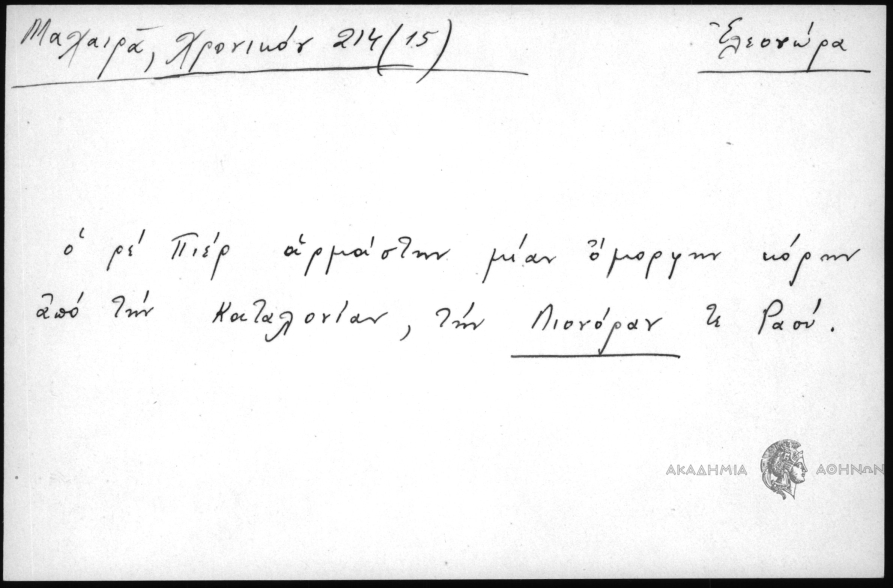 Μαχαιρᾶ, Χρονικόν 214 (15)
Ἐλεονώρα
ὁ ρέ Πιέρ ἁρμάστην μίαν ὄμορφην κόρην
ἀπό τήν Καταλονίαν, τήν Λιονόραν τε Ραού.
ΑΚΑΔΗΜΙΑ ΑΘΗΝΩΝ